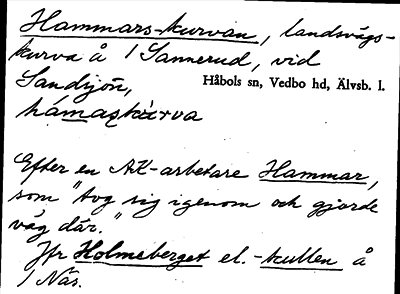 Hammars-kurvan, landsvägs-
kurva å 1 Sannerud, vid
Sandsjön, Håbols sn, Vedbo hd, Älvsb. l.
Efter en AK-arbetare Hammar,
som "tog sig igenom och gjorde
väg där."
Jfr Holmeberget el. -kullen å
1 Näs.